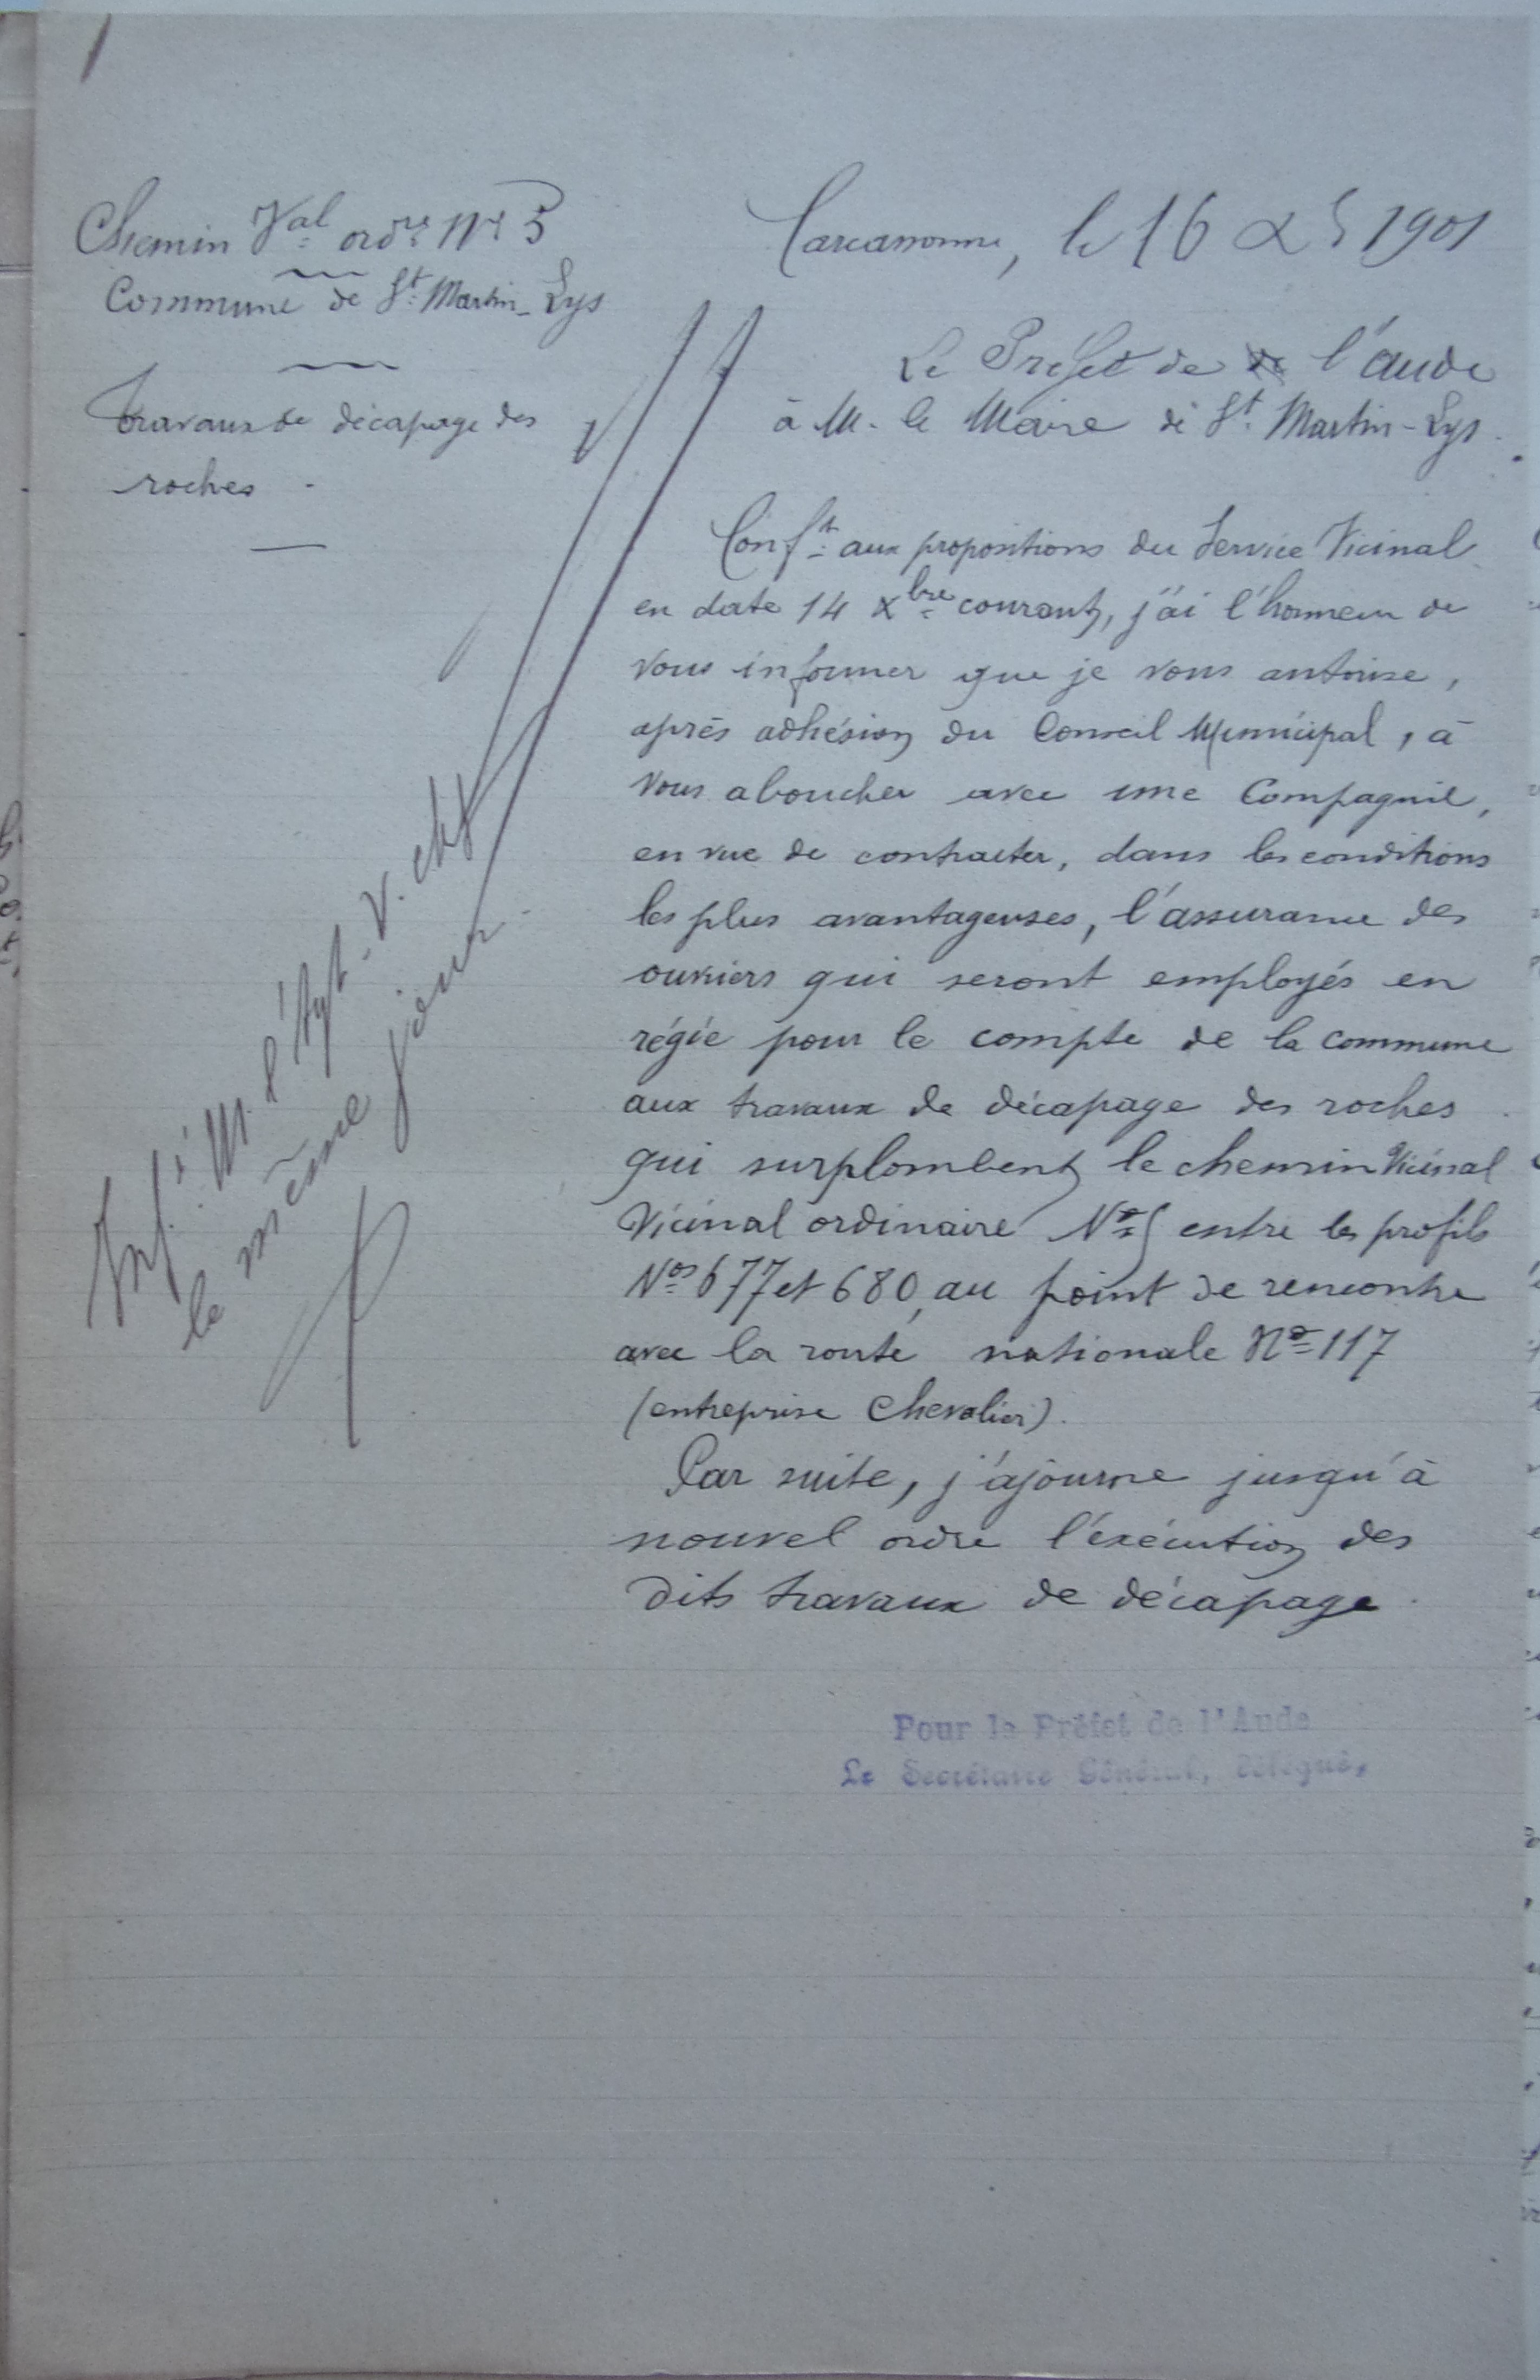 Chemin Val ordre No 5
Commune de St Martin-Lys
Travaux de décapage des
roches.
Carcassonne, le 16 Xbre 1901
Le Préfet de l'aude
à M. le Maire de St Martin-Lys.
Conft aux propositions du Service Vicinal
en date 14 Xbre courant, j'ai l'honneur de
vous informer que je vous autorise,
après adhésion du Conseil Municipal, à
vous aboucher avec une Compagnie,
en vue de contracter, dans les conditions
les plus avantageuses, l'assurance des
ouvriers qui seront employés en
régie pour le compte de la commune
aux travaux de décapage des roches
qui surplombent le chemin Vicinal
Vicinal ordinaire No 5 entre les profils
Nos 677 et 680, au point de rencontre
avec la route nationale No 117
(entreprise Chevalier).
Par suite, j'ajourne jusqu'à
nouvel ordre l'exécution des
dits travaux de décapage.
Pour le Préfet de l'Aude
Le Secrétaire Général, délégué,
M. l'Agt-V. chef
le même jour